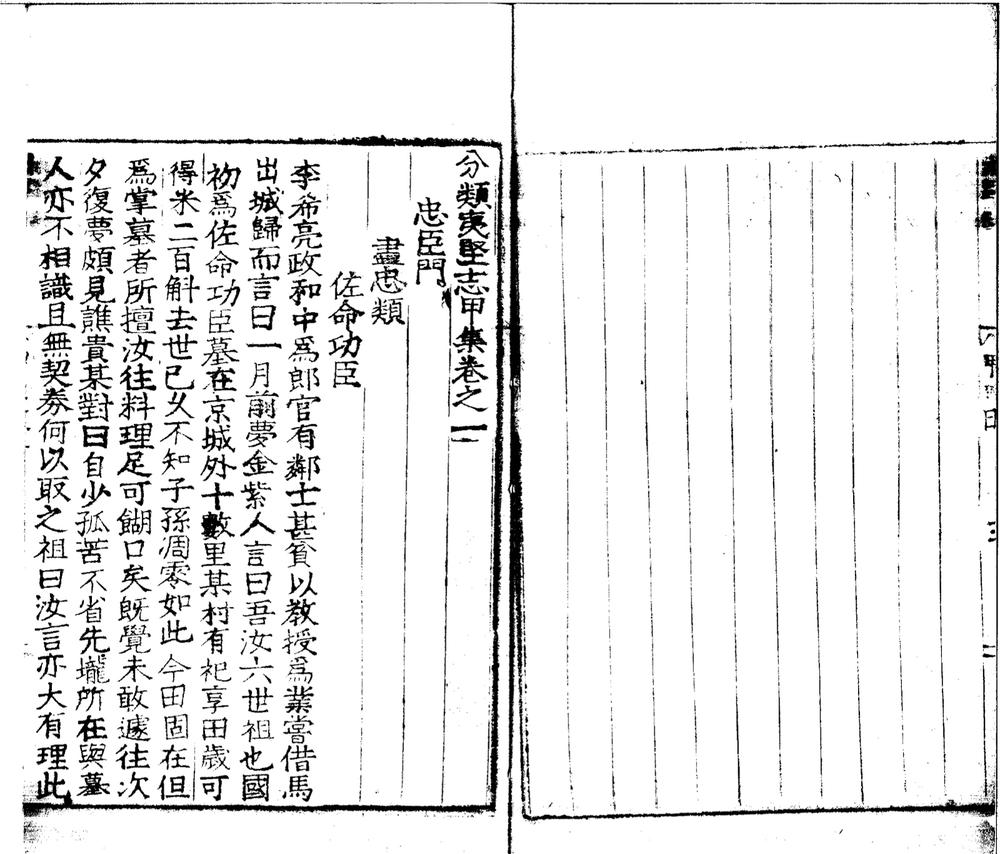 分類夷堅志甲集卷之一
忠臣門
盡忠類
佐命功臣
李希亮政和中爲郎官有鄰士甚貧以教授爲業嘗借馬
出城歸而言曰一月前夢金紫人言曰吾汝六世祖也國
初爲佐命功臣墓在京城外十數里某村有祀享田歲可
得米二百斛去世已久不知子孫凋零如此今田固在但
爲掌墓者所擅汝往料理足可餬口矣既覺未敢遽往次
夕復夢頗見譙責某對曰自少孤苦不省先壠所在與墓
人亦不相識且無契劵何以取之祖曰汝言亦大有理此